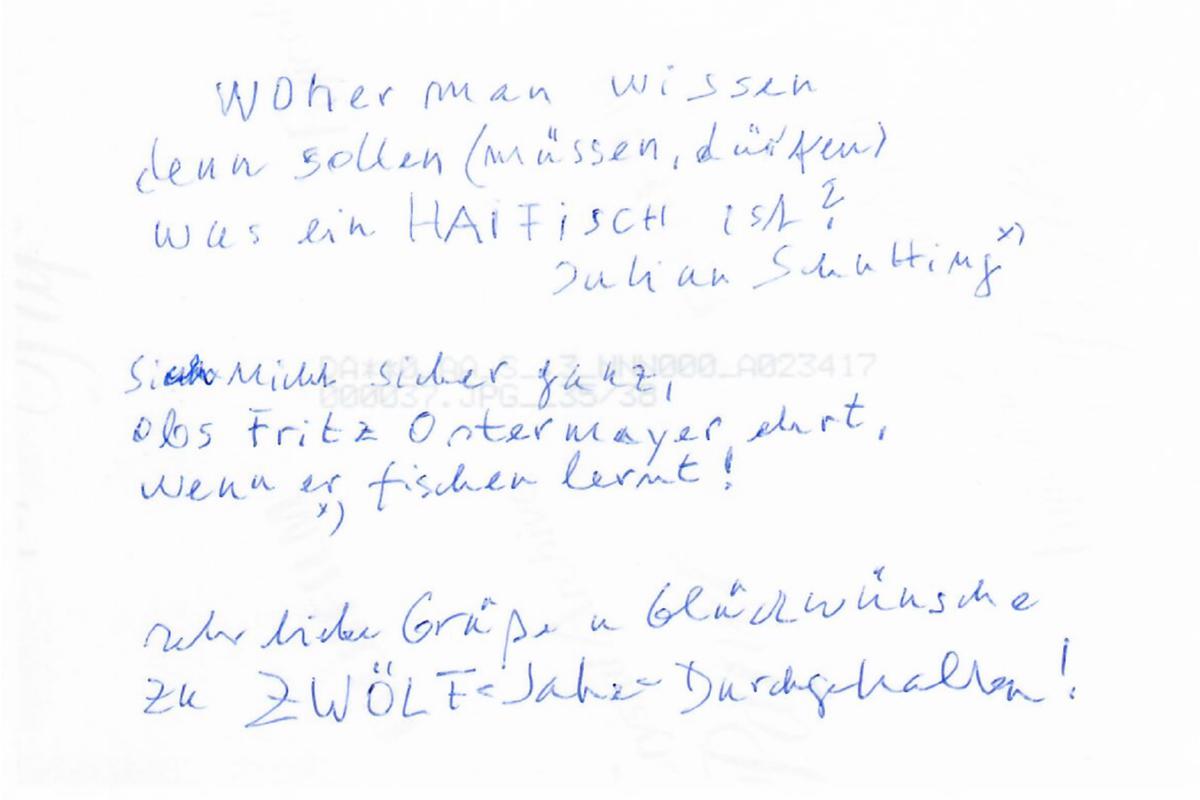 WOHer man wissen
denn sollen (müssen, dürfen)
was ein HAIFiSCH ist?
Julian Schutting x)
nicht sicher ganz,
obs Fritz Ostermayer ehrt,
wenn er fischen lernt!
x)
sehr liebe Grüße u Glückwünsche
zu ZWÖLF-Jahre-Durchgehalten!
DA**0_AO_S_13_WNW000_A023417
000037.JPG_135/38